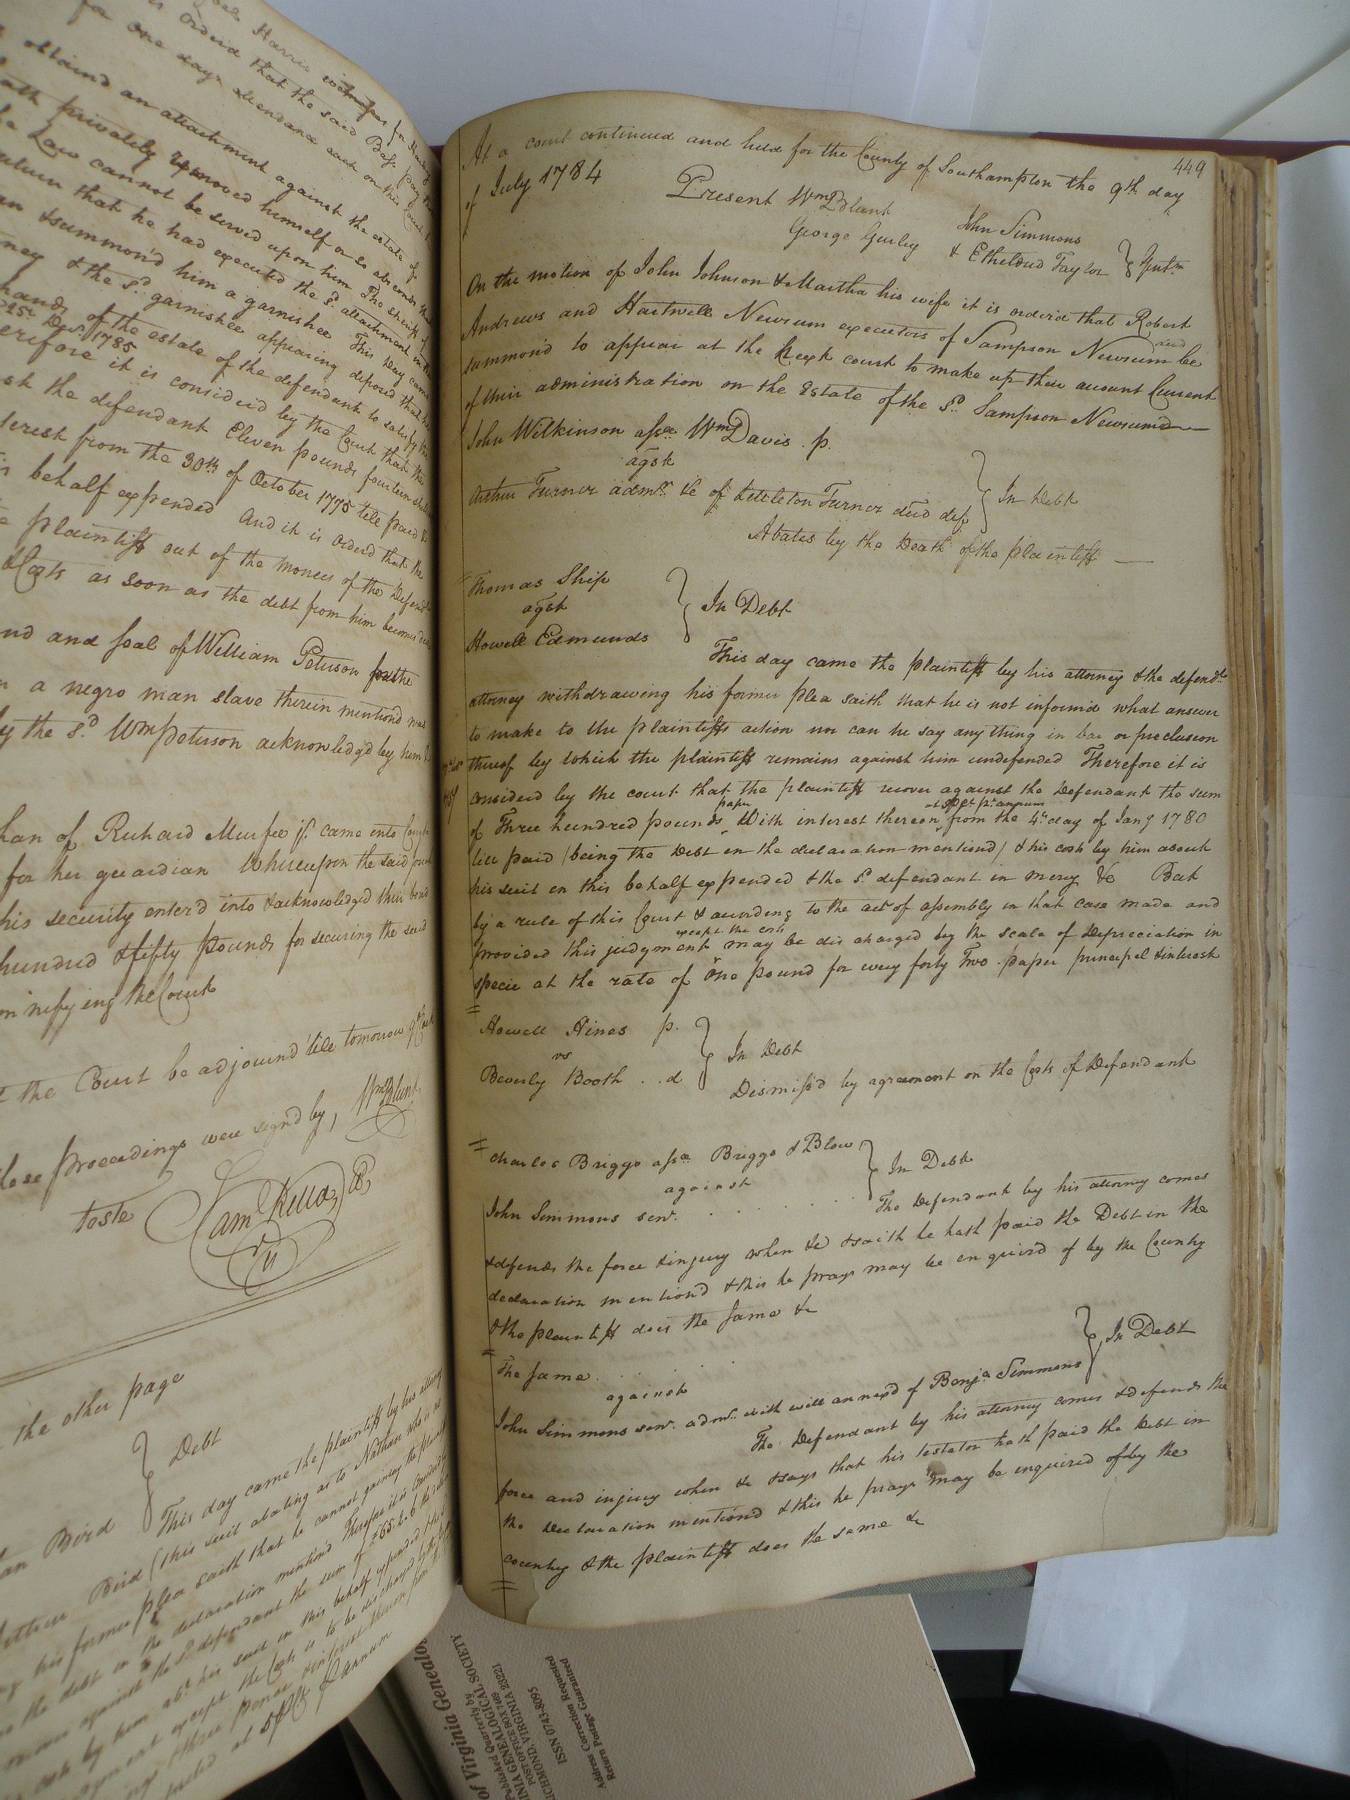 Harris
is orderd that the said
for one days atendance
obtaind an attachment against the estate of
privately removed himself or so absconds
Law cannot be served upon him The sheriff
that he had executed the sd. attachment
& summon'd him a garnishee This day came
& the sd. garnishee appearing deposed that
hands of the estate of the defendant to satisfy the
1785
it is considerd by the Court that the
the defendant Eleven pounds fourteen
from the 30th of October 1775 till paid
behalf expended And it is orderd that the
plaintiff out of the monies of the Defend
Costs as soon as the debt from him becomes due
and seal of William Peterson for the
a negro man slave therein mentiond
by the sd. Wm Peterson acknowledg'd by him
of Richard Murfee jr. came into
for her guardian Whereupon the said
his security enter'd into & acknowledged their bond
hundred & fifty pounds for securing the said
the Court
the Court be adjournd 'till tomorrow
proceedings were signd by, Wm Blunt
teste Sam Kello
the other page
Debt
Bird
This day came the plaintiff by his attorney
Bird (this suit abating as to Nathan who is
his former plea saith that he cannot gainsay the
the debt in the declaration mentiond Therefore it is
against the sd. defendant the sum of £65.
by him abt. his suit in this behalf expended
except the Costs is to be discharged
three pence
at 5 P Ct P annum
449
At a court continued and held for the County of Southampton the 9th. day
of July 1784
Present Wm Blunt John Simmons
George Gurley & Etheldred Taylor } Gentn
On the motion of John Johnson & Martha his wife it is orderd that Robert
Andrews and Hartwell Newsum executors of Sampson Newsum be
summon'd to appear at the next court to make up their account Current
of their administration on the Estate of the sd. Sampson Newsum
John Wilkinson assee. Wm Davis . p.
agst
Arthur Turner admr. &c of Littleton Turner decd def. } In Debt
Abates by the Death of the plaintiff
Thomas Ship
agst } In Debt
Howell Edmunds
This day came the plaintiff by his attorney & the defendts
attorney withdrawing his former plea saith that he is not inform'd what answer
to make to the plaintiffs action nor can he say any thing in bar or preclusion
thereof by which the plaintiff remains against him undefended Therefore it is
considerd by the court that the plaintiff recover against the Defendant the sum
paper at 5 P Ct Pr annum
of Three hundred pounds With interest thereon from the 4th day of Jany 1780
till paid (being the Debt in the declaration mentiond) & his costs by him about
his suit in this behalf expended & the sd. defendant in mercy &c But
by a rule of this Court & according to the act of assembly in that case made and
except the costs
provided this judgment may be discharged by the scale of Depreciation in
specie at the rate of One pound for every forty Two . paper principal & interest
Howell Hines p.
vs } In Debt
Beverly Booth . . d
Dismiss'd by agreement on the Costs of Defendant
Charles Briggs assee. Briggs & Blow
against } In Debt
John Simmons senr.
The Defendant by his attorney comes
& defends the force & injury when &c & saith he hath paid the Debt in the
declaration mentiond & this he prays may be enquir'd of by the Country
& the plaintiff does the same &c
The same
against } In Debt
John Simmons senr. admr. with will annex'd of Benja. Simmons
The Defendant by his attorney comes & defends the
force and injury when &c & says that his testator hath paid the Debt in
the Declaration mention'd & this he prays may be enquired of by the
country & the plaintiff does the same &c
of Virginia Genealo
Published Quarterly by
INIA GENEALOGICAL SOCIETY
POST OFFICE BOX 7469
ICHMOND, VIRGINIA 23221
ISSN 0743-8095
Address Correction Requested
Return Postage Guaranteed